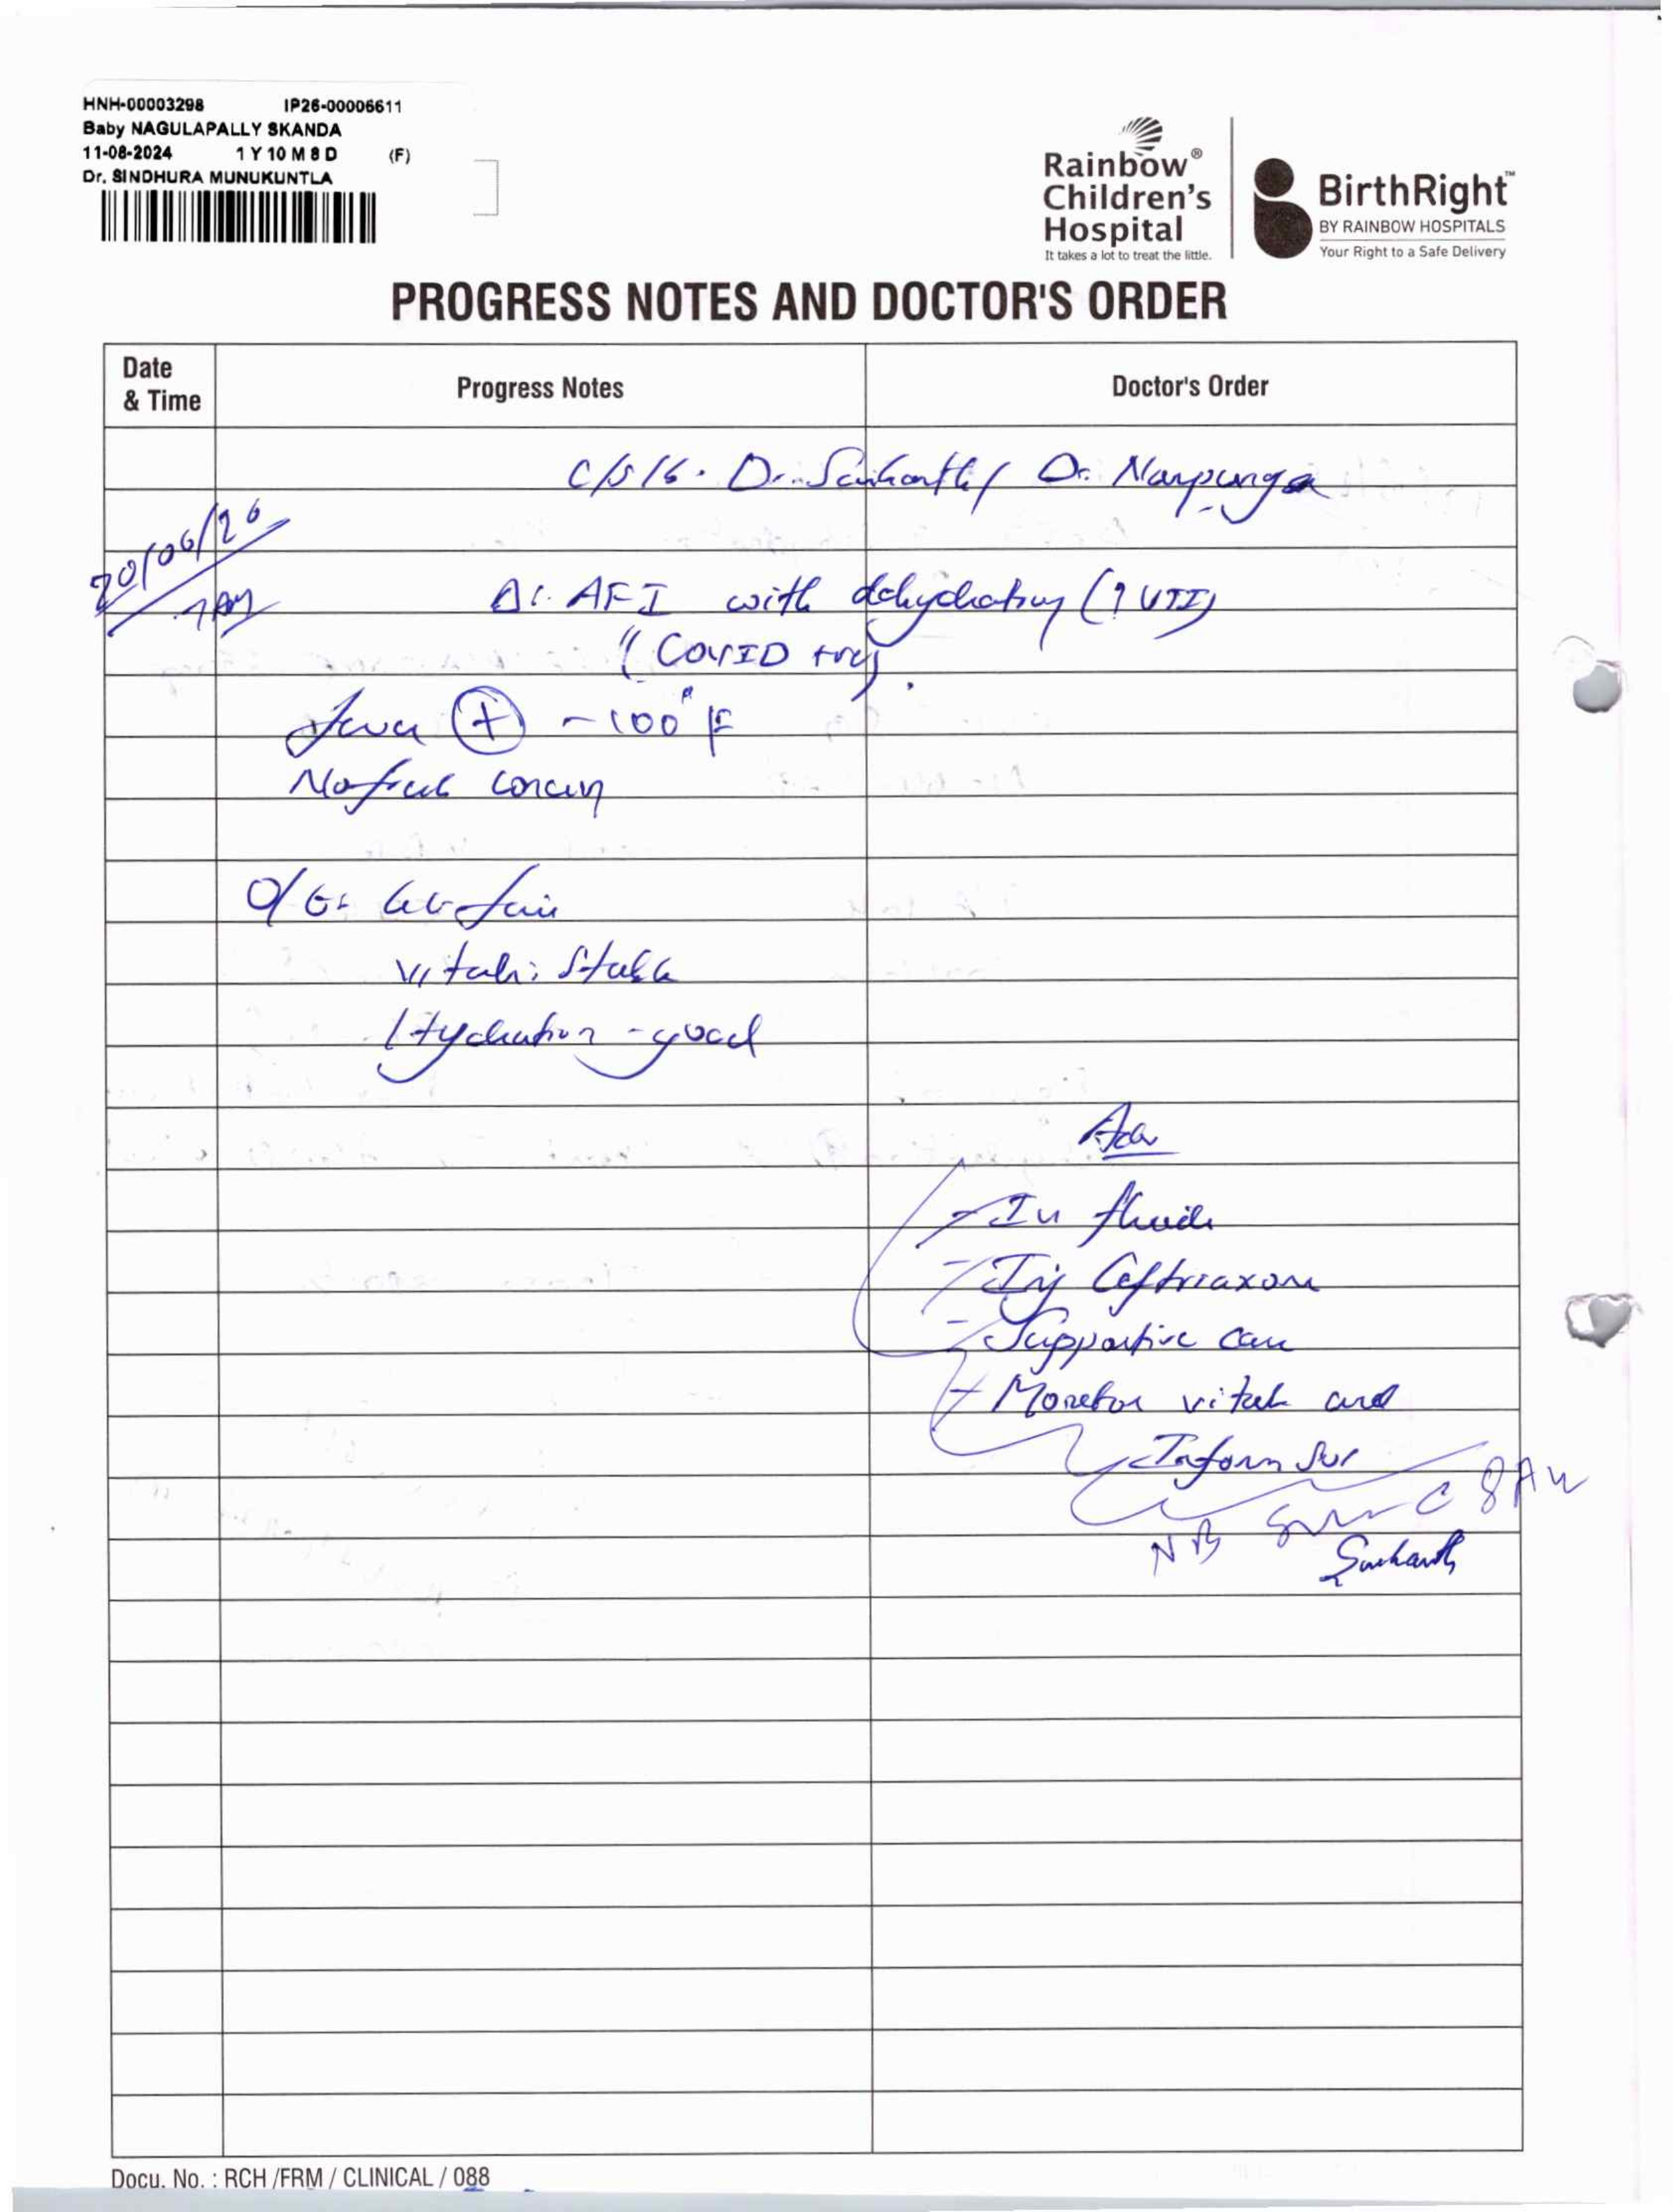 HNH-00003298 IP26-00006611
Baby NAGULAPALLY SKANDA
11-08-2024 1 Y 10 M 8 D (F)
Dr. SINDHURA MUNUKUNTLA
Rainbow®
Children's
Hospital
It takes a lot to treat the little.
BirthRight™
BY RAINBOW HOSPITALS
Your Right to a Safe Delivery
PROGRESS NOTES AND DOCTOR'S ORDER
Date & Time Progress Notes Doctor's Order
C/S/B. Dr. / Dr.
20/06/26
7AM
Δ: AFI with dehydration (? UTI)
(COVID +ve)
Fever (+) ~100°F
No fresh concern
O/E: GC-fair
Vitals: Stable
Hydration - good
Adv
- IV fluids
- Inj Ceftriaxone
- Supportive care
- Monitor vitals and
Inform SOS
NB 8AM
Docu. No. : RCH /FRM / CLINICAL / 088